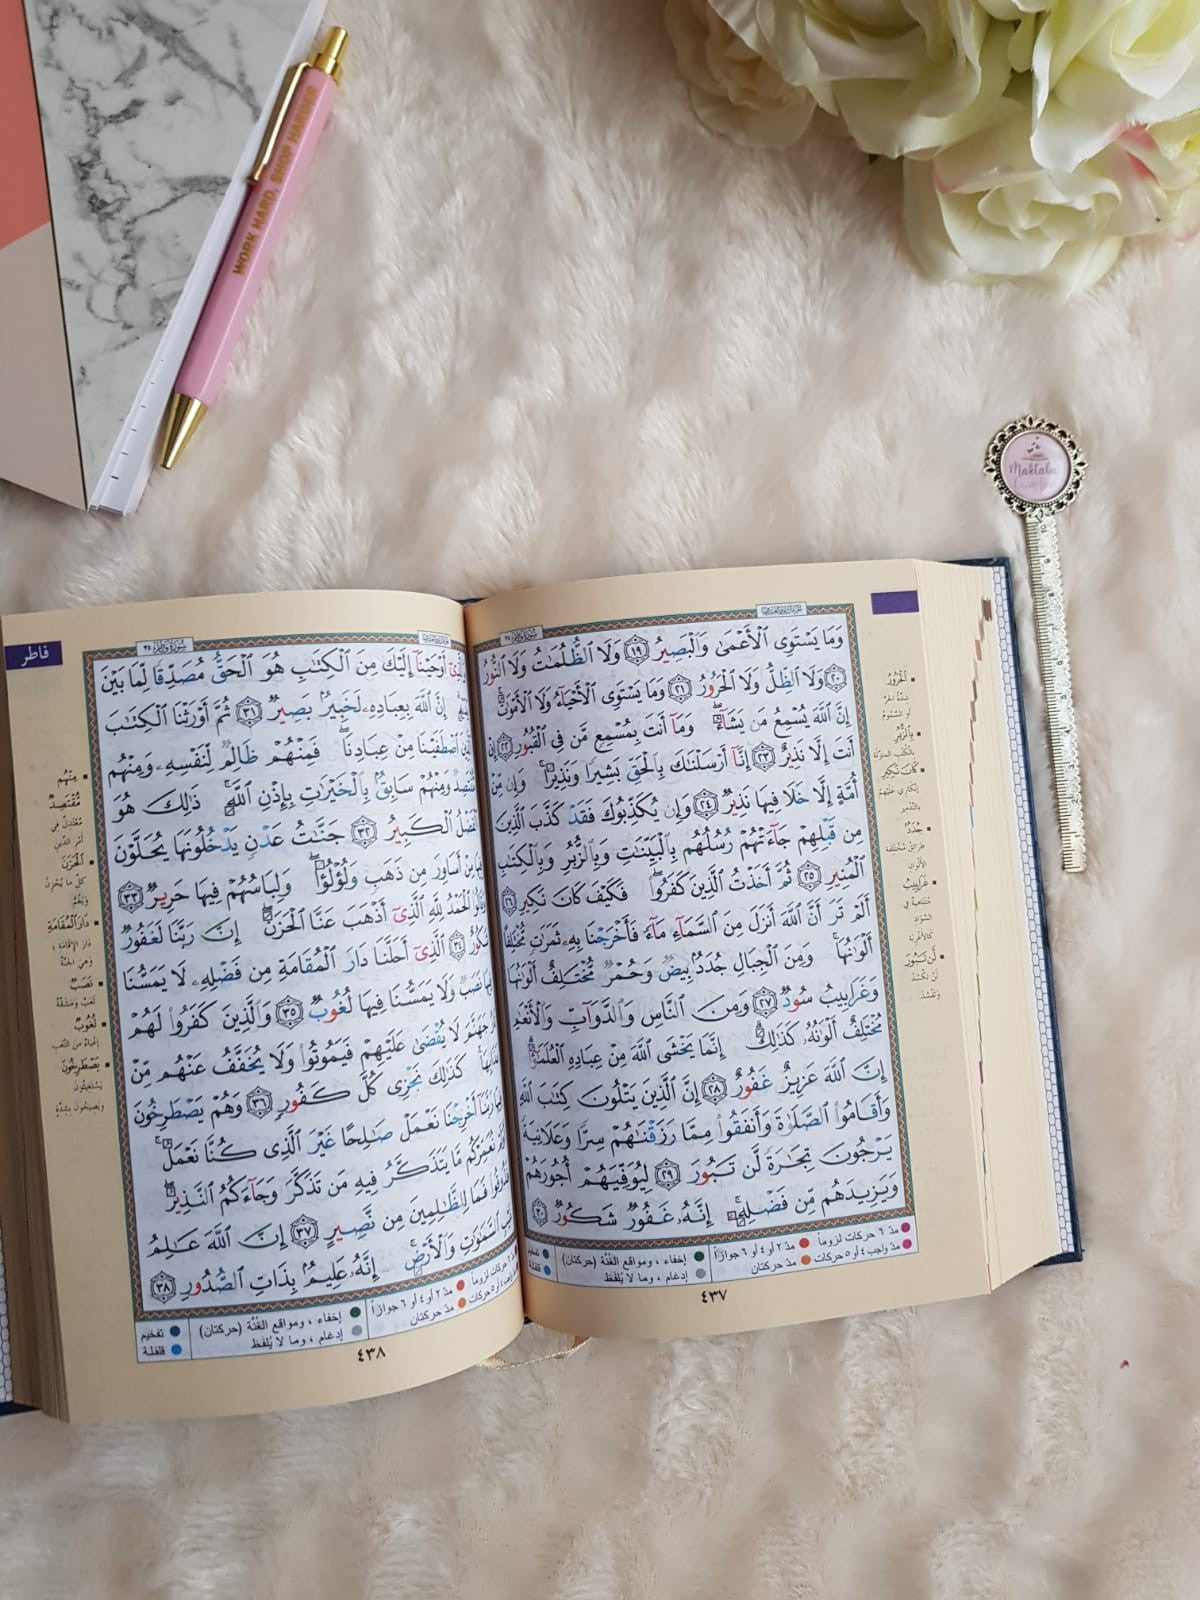 WORK HARD, SHOP HARDER
Maktaba
وَمَا يَسْتَوِى ٱلْأَعْمَىٰ وَٱلْبَصِيرُ ١٩ وَلَا ٱلظُّلُمَٰتُ وَلَا ٱلنُّورُ
٢٠ وَلَا ٱلظِّلُّ وَلَا ٱلْحَرُورُ ٢١ وَمَا يَسْتَوِى ٱلْأَحْيَآءُ وَلَا ٱلْأَمْوَٰتُ ۚ
إِنَّ ٱللَّهَ يُسْمِعُ مَن يَشَآءُ ۖ وَمَآ أَنتَ بِمُسْمِعٍ مَّن فِى ٱلْقُبُورِ ٢٢ إِنْ
أَنتَ إِلَّا نَذِيرٌ ٢٣ إِنَّآ أَرْسَلْنَٰكَ بِٱلْحَقِّ بَشِيرًا وَنَذِيرًا ۚ وَإِن مِّنْ
أُمَّةٍ إِلَّا خَلَا فِيهَا نَذِيرٌ ٢٤ وَإِن يُكَذِّبُوكَ فَقَدْ كَذَّبَ ٱلَّذِينَ
مِن قَبْلِهِمْ جَآءَتْهُمْ رُسُلُهُم بِٱلْبَيِّنَٰتِ وَبِٱلزُّبُرِ وَبِٱلْكِتَٰبِ
ٱلْمُنِيرِ ٢٥ ثُمَّ أَخَذْتُ ٱلَّذِينَ كَفَرُوا۟ ۖ فَكَيْفَ كَانَ نَكِيرِ ٢٦
أَلَمْ تَرَ أَنَّ ٱللَّهَ أَنزَلَ مِنَ ٱلسَّمَآءِ مَآءً فَأَخْرَجْنَا بِهِۦ ثَمَرَٰتٍ مُّخْتَلِفًا
أَلْوَٰنُهَا ۚ وَمِنَ ٱلْجِبَالِ جُدَدٌۢ بِيضٌ وَحُمْرٌ مُّخْتَلِفٌ أَلْوَٰنُهَا
وَغَرَابِيبُ سُودٌ ٢٧ وَمِنَ ٱلنَّاسِ وَٱلدَّوَآبِّ وَٱلْأَنْعَٰمِ
مُخْتَلِفٌ أَلْوَٰنُهُۥ كَذَٰلِكَ ۗ إِنَّمَا يَخْشَى ٱللَّهَ مِنْ عِبَادِهِ ٱلْعُلَمَٰٓؤُا۟ ۗ
إِنَّ ٱللَّهَ عَزِيزٌ غَفُورٌ ٢٨ إِنَّ ٱلَّذِينَ يَتْلُونَ كِتَٰبَ ٱللَّهِ
وَأَقَامُوا۟ ٱلصَّلَوٰةَ وَأَنفَقُوا۟ مِمَّا رَزَقْنَٰهُمْ سِرًّا وَعَلَانِيَةً
يَرْجُونَ تِجَٰرَةً لَّن تَبُورَ ٢٩ لِيُوَفِّيَهُمْ أُجُورَهُمْ
وَيَزِيدَهُم مِّن فَضْلِهِۦٓ ۚ إِنَّهُۥ غَفُورٌ شَكُورٌ ٣٠
الْحَرُورُ
شدّة الحرّ
أو السّموم
بِالزُّبُرِ
بالكتب المنزلة
كَانَ نَكِيرِ
إنكاري عليهم
بالتدمير
جُدَدٌ
طرائق مختلفة
الألوان
غَرَابِيبُ
متناهية في
السّواد
كالأغربة
لَّن تَبُورَ
لن تكسد
وتفسد
مدّ ٦ حركات لزوماً مدّ ٢ أو ٤ أو ٦ جوازاً إخفاء ، ومواقع الغُنَّة (حركتان) تفخيم
مدّ واجب ٤ أو ٥ حركات مدّ حركتان إدغام ، وما لا يُلفَظ قلقلة
٤٣٧
فاطر
أَوْحَيْنَآ إِلَيْكَ مِنَ ٱلْكِتَٰبِ هُوَ ٱلْحَقُّ مُصَدِّقًا لِّمَا بَيْنَ
إِنَّ ٱللَّهَ بِعِبَادِهِۦ لَخَبِيرٌۢ بَصِيرٌ ٣١ ثُمَّ أَوْرَثْنَا ٱلْكِتَٰبَ
ٱصْطَفَيْنَا مِنْ عِبَادِنَا ۖ فَمِنْهُمْ ظَالِمٌ لِّنَفْسِهِۦ وَمِنْهُم
وَمِنْهُمْ سَابِقٌۢ بِٱلْخَيْرَٰتِ بِإِذْنِ ٱللَّهِ ۚ ذَٰلِكَ هُوَ
ٱلْكَبِيرُ ٣٢ جَنَّٰتُ عَدْنٍ يَدْخُلُونَهَا يُحَلَّوْنَ
مِنْ أَسَاوِرَ مِن ذَهَبٍ وَلُؤْلُؤًا ۖ وَلِبَاسُهُمْ فِيهَا حَرِيرٌ ٣٣
ٱلْحَمْدُ لِلَّهِ ٱلَّذِىٓ أَذْهَبَ عَنَّا ٱلْحَزَنَ ۖ إِنَّ رَبَّنَا لَغَفُورٌ
شَكُورٌ ٣٤ ٱلَّذِىٓ أَحَلَّنَا دَارَ ٱلْمُقَامَةِ مِن فَضْلِهِۦ لَا يَمَسُّنَا
نَصَبٌ وَلَا يَمَسُّنَا فِيهَا لُغُوبٌ ٣٥ وَٱلَّذِينَ كَفَرُوا۟ لَهُمْ
جَهَنَّمَ لَا يُقْضَىٰ عَلَيْهِمْ فَيَمُوتُوا۟ وَلَا يُخَفَّفُ عَنْهُم مِّنْ
كَذَٰلِكَ نَجْزِى كُلَّ كَفُورٍ ٣٦ وَهُمْ يَصْطَرِخُونَ
أَخْرِجْنَا نَعْمَلْ صَٰلِحًا غَيْرَ ٱلَّذِى كُنَّا نَعْمَلُ ۚ
نُعَمِّرْكُم مَّا يَتَذَكَّرُ فِيهِ مَن تَذَكَّرَ وَجَآءَكُمُ ٱلنَّذِيرُ ۖ
فَمَا لِلظَّٰلِمِينَ مِن نَّصِيرٍ ٣٧ إِنَّ ٱللَّهَ عَٰلِمُ
ٱلسَّمَٰوَٰتِ وَٱلْأَرْضِ ۚ إِنَّهُۥ عَلِيمٌۢ بِذَاتِ ٱلصُّدُورِ ٣٨
مِنْهُم
مُّقْتَصِدٌ
معتدل في
أمر الدّين
الْحَزَنَ
كلّ ما يُحزن
ويَغُمّ
دَارَ الْمُقَامَةِ
دار الإقامة ،
وهي الجنّة
نَصَبٌ
تعب ومشقّة
لُغُوبٌ
إعياء من التّعب
يَصْطَرِخُونَ
يستغيثون
ويصيحون بشدّة
مدّ ٢ أو ٤ أو ٦ جوازاً إخفاء ، ومواقع الغُنَّة (حركتان) تفخيم
مدّ حركتان إدغام ، وما لا يُلفَظ قلقلة
٤٣٨